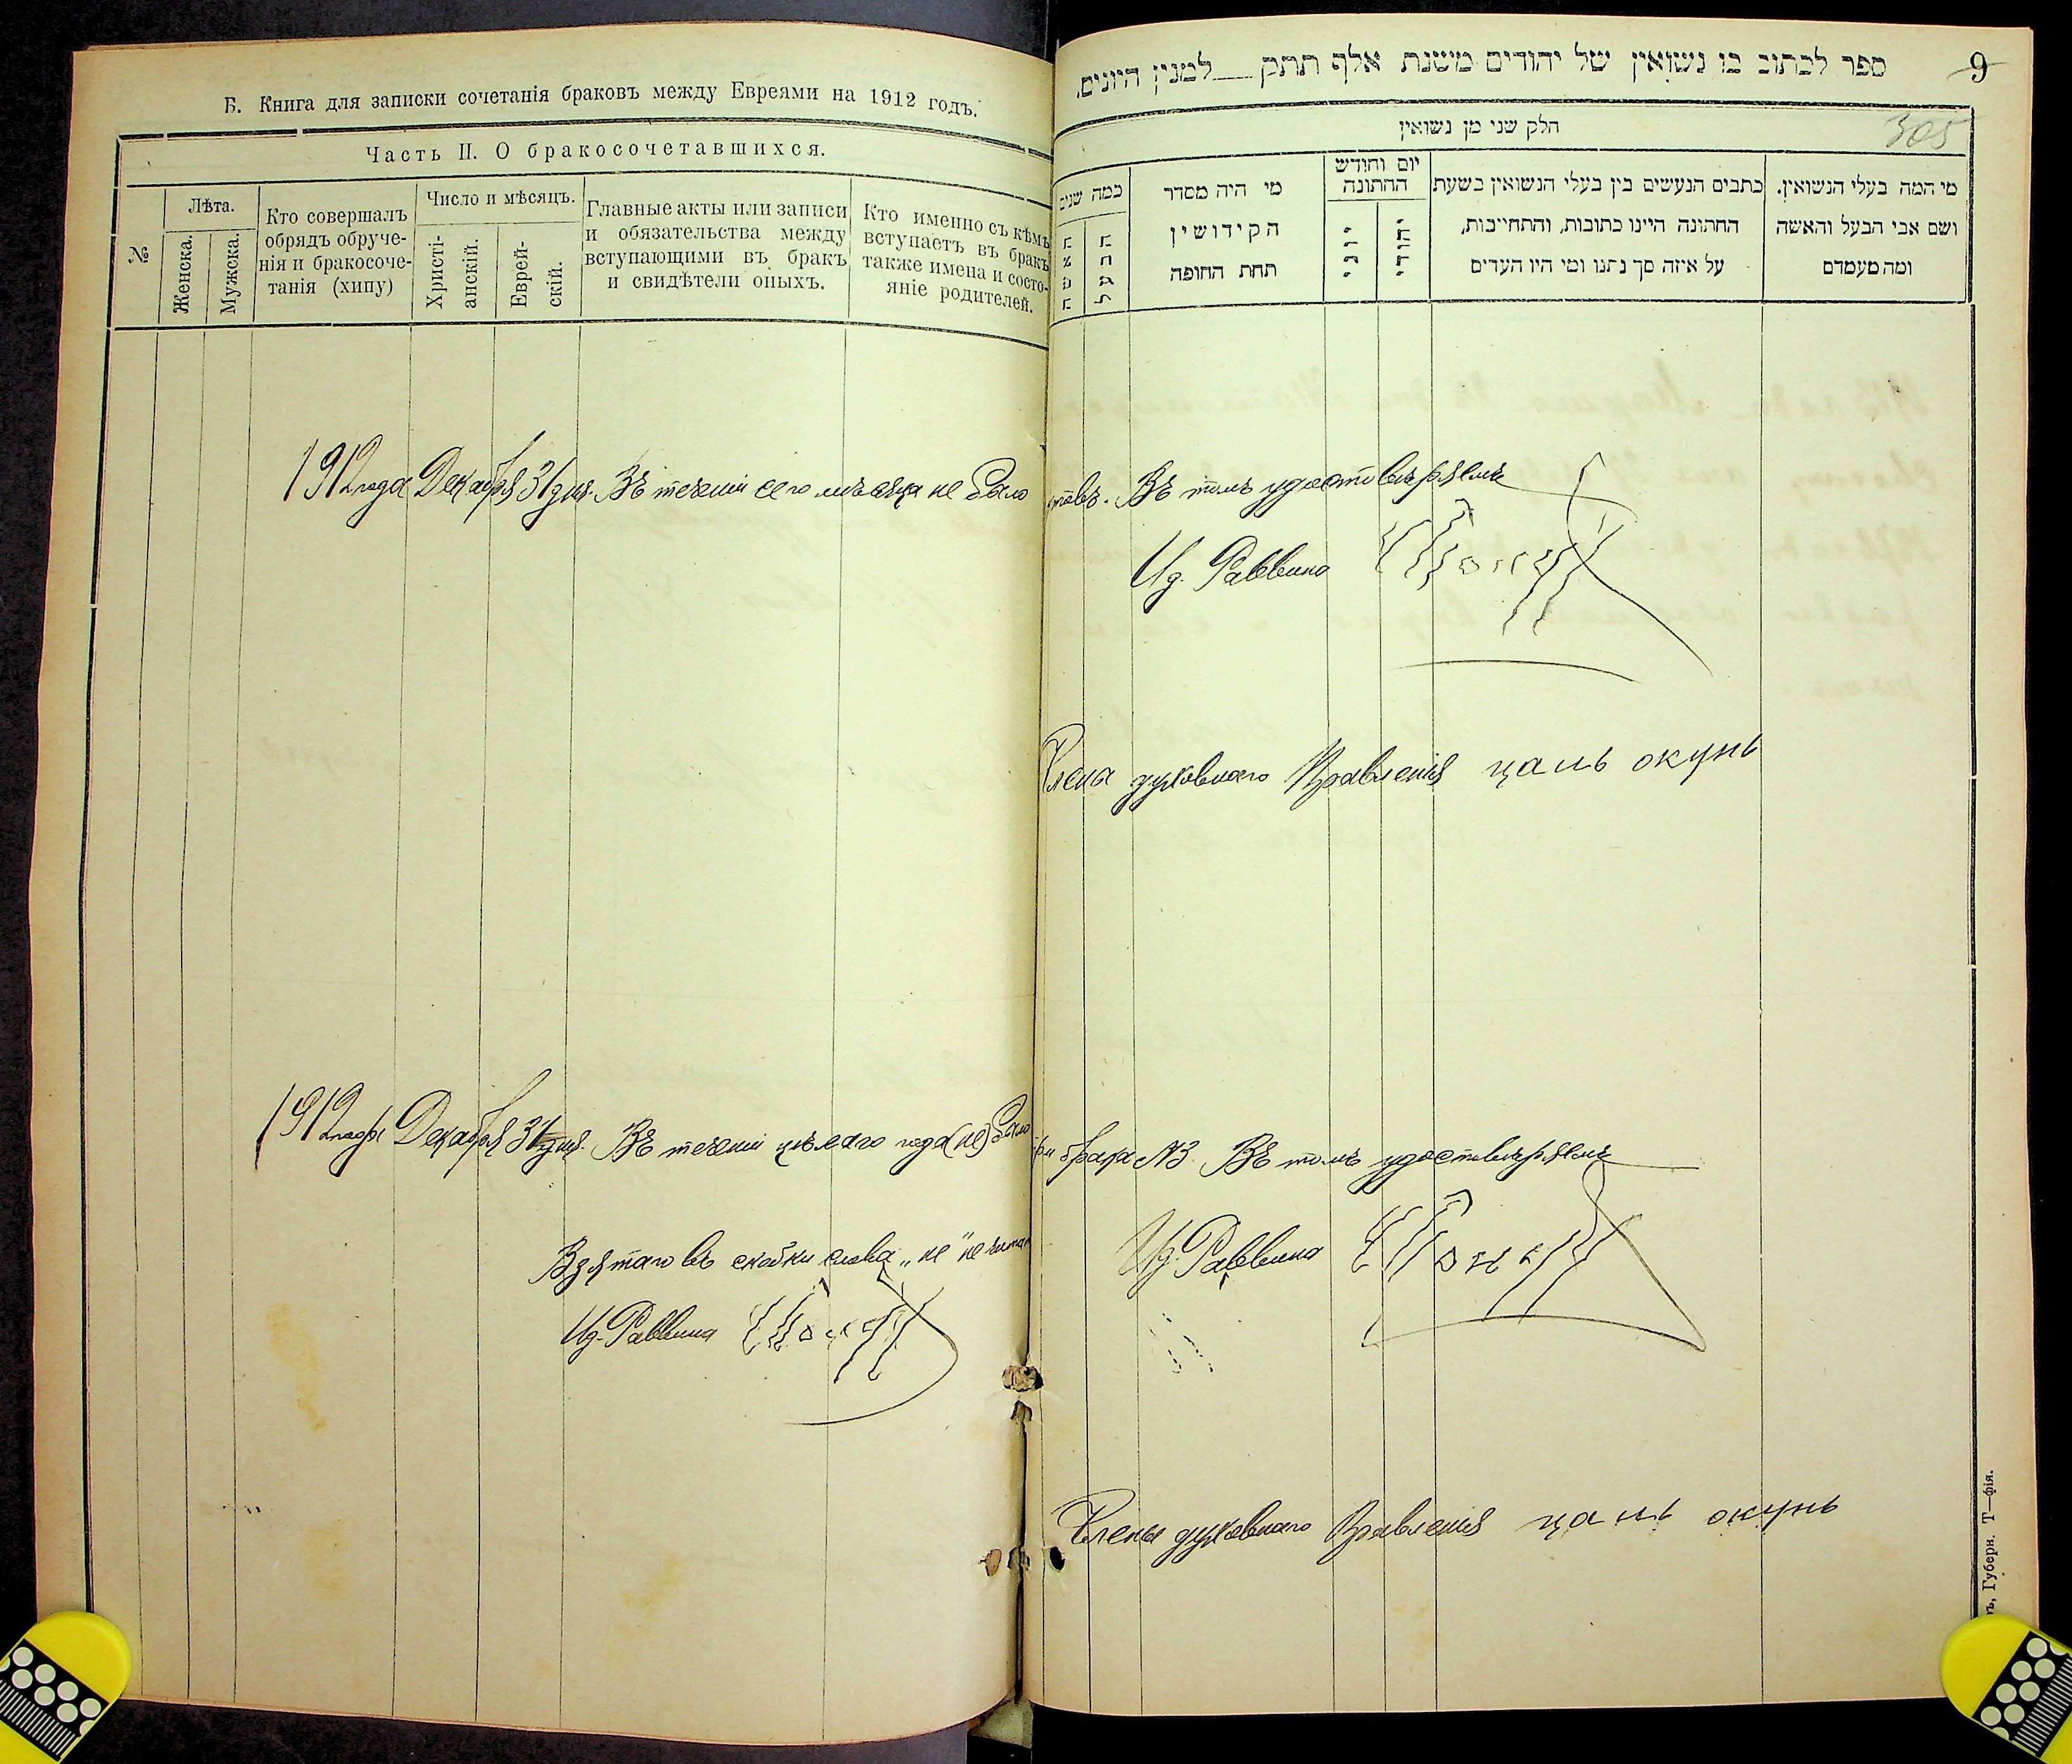 Б. Книга для записки сочетанія браковъ между Евреями на 1912 годъ.
Часть II. О бракосочетавшихся.
№
Лѣта.
Женска.
Мужска.
Кто совершалъ
обрядъ обруче-
нія и бракосоче-
танія (хипу)
Число и мѣсяцъ.
Христі-
анскій.
Еврей-
скій.
Главные акты или записи
и обязательства между
вступающими въ бракъ
и свидѣтели оныхъ.
Кто именно съ кѣмъ
вступаетъ въ бракъ
также имена и состо-
яніе родителей.
1912 года Декабря 31 дня. Въ теченіи сего мѣсяца не было
1912 года Декабря 31 дня. Въ теченіи цѣлаго года (не) было
Взятаго въ скобки слова „не" не читать
И д. Раввина
ספר לכתוב בו נשואין של יהודים משנת אלף תתק ___ למנין היונים.
9
חלק שני מן נשואין
305
כמה שנים
האשה
הבעל
מי היה מסדר
הקידושין
תחת החופה
יום וחודש
החתונה
יוני
יהודי
כתבים הנעשים בין בעלי הנשואין בשעת
החתונה היינו כתובות, והתחייבות,
על איזה סך נתנו ומי היו העדים
מי המה בעלי הנשואין.
ושם אבי הבעל והאשה
ומה מעמדם
Въ томъ удостовѣряемъ
И д. Раввина
Члены духовнаго Правленія цаль окунь
три брака №3. Въ томъ удостовѣряемъ
И д. Раввина
Члены духовнаго Правленія цаль окунь
Губерн. Т—фія.